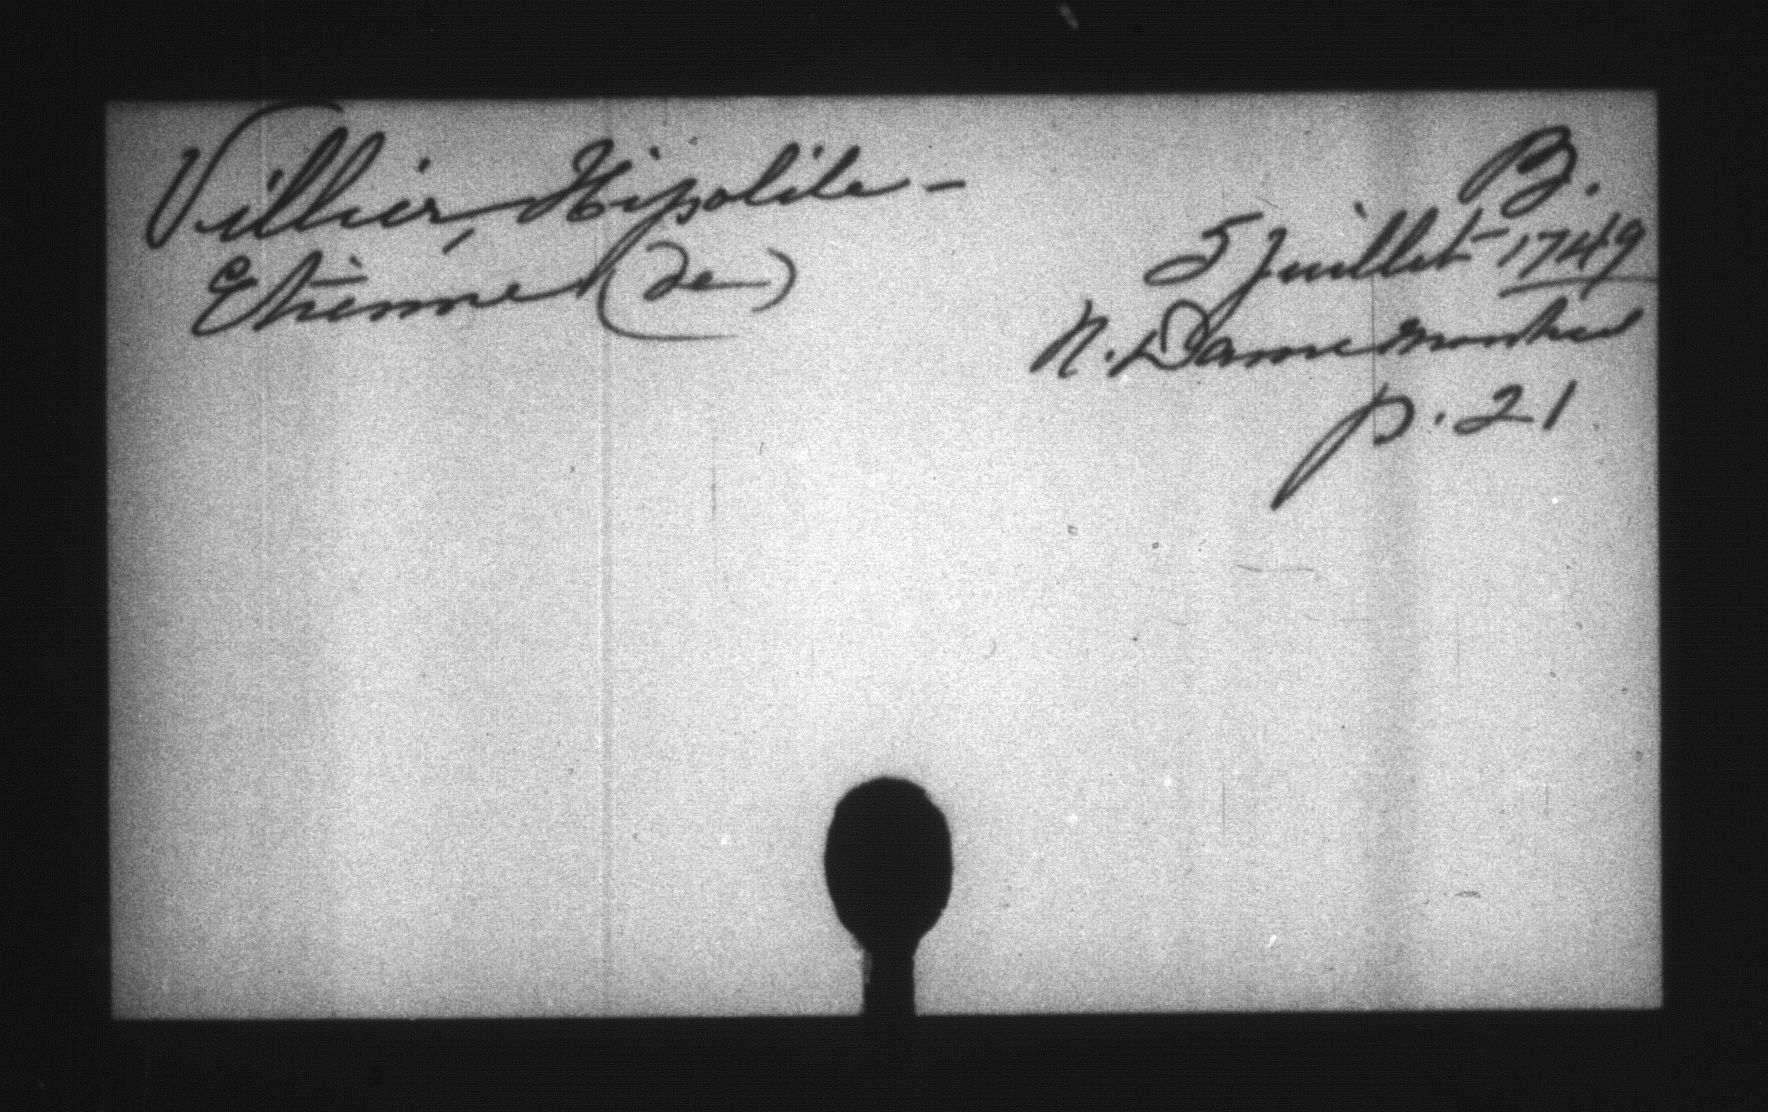 Villier, Hipolite -
Etienne (de)
B.
5 Juillet 1749
N. Dame Montreal
p. 21